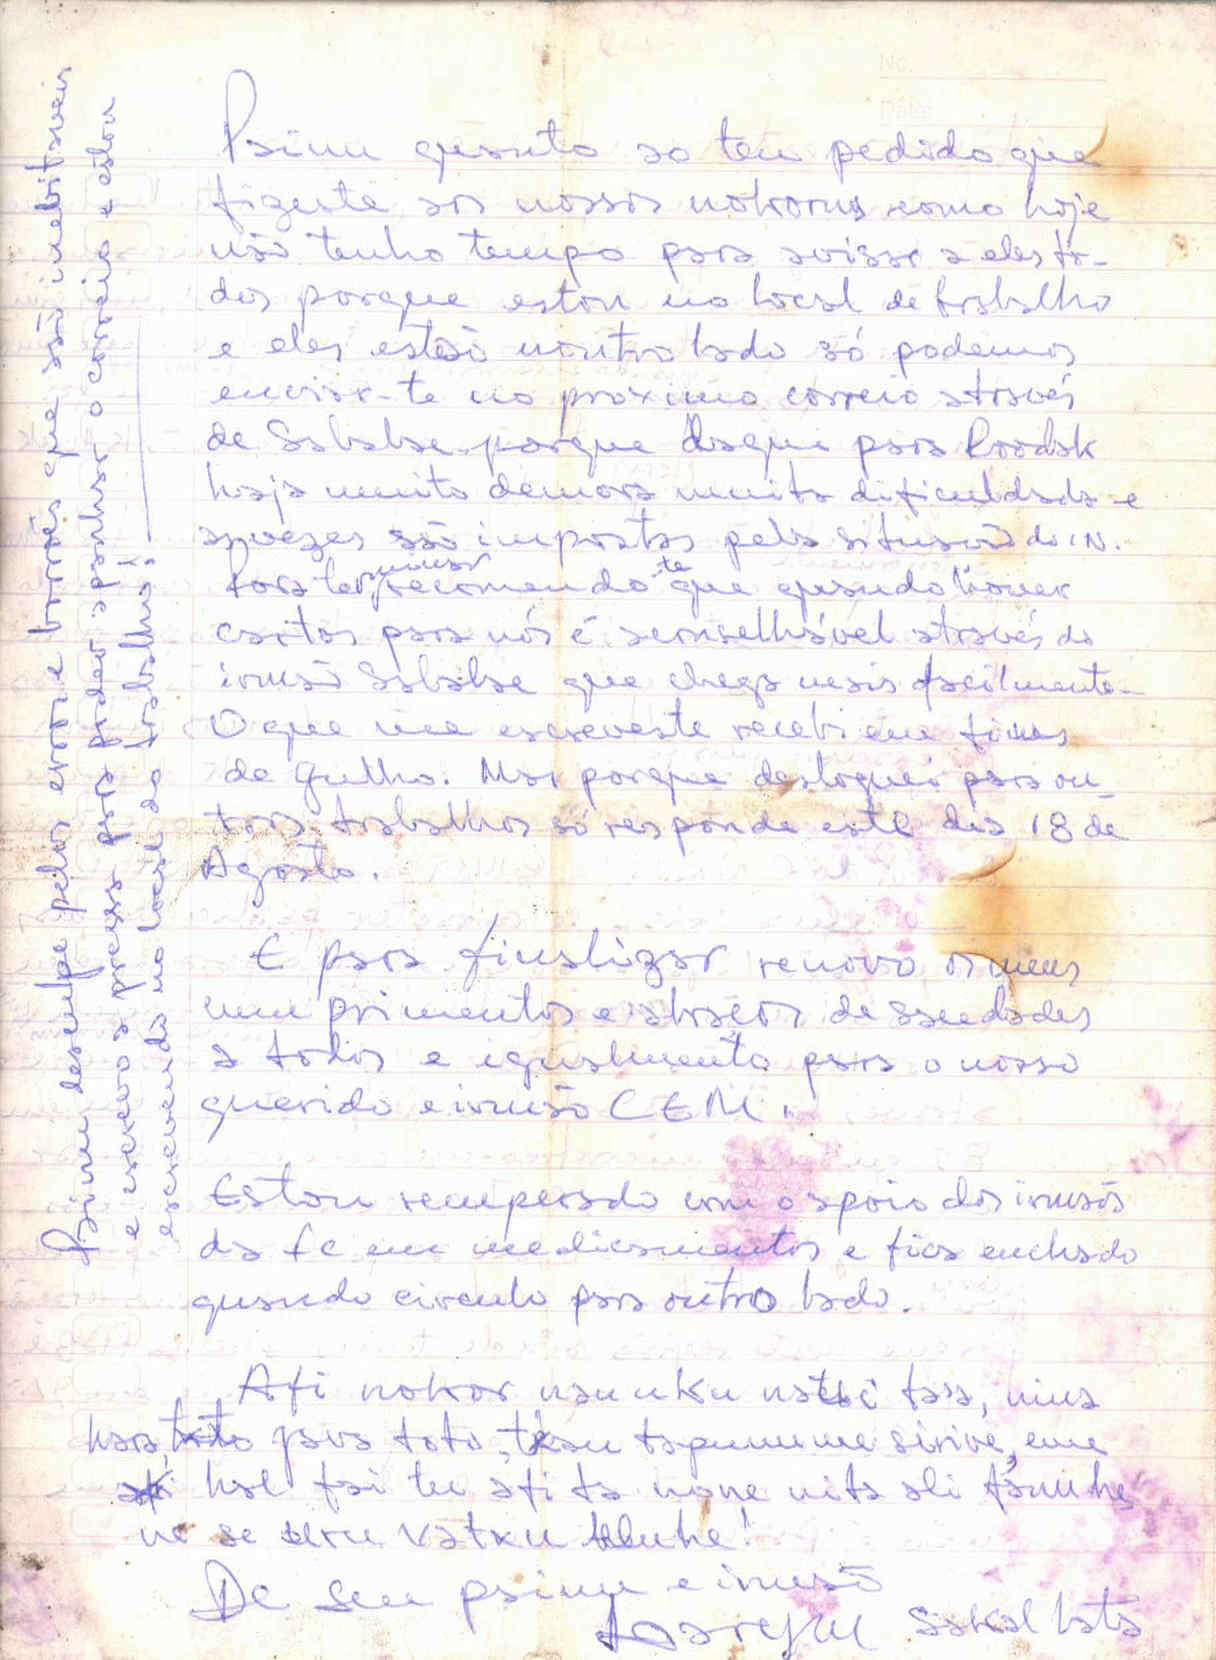 No.
Date:
Primu quanto ao teu pedido que
fizeste aos nossos nokorus como hoje
não tenho tempo para avisar a eles to-
dos porque estou no local de trabalho
e eles estão noutro lado só podemos
enviar-te no proximo correio através
de Sabalae porque daqui para
haja muita demora muita dificuldade e
as vezes são impostas pela situação do IN.
Para recomendo-te que quando houver
cartas para nós é aconselhável através do
irmão Sabalae que chega mais facilmente.
O que me escreveste recebi em finas
de Gulho. Mas porque desloquei para ou-
tros trabalhos só responde este dia 18 de
Agosto.
E para finalizar renovo os meus
cumprimentos e abraços de saudades
a todos e igualmente para o nosso
querido e irmão CEM.
Estou recuperado com o apoio dos irmãos
da fc em medicamentos e fica enchado
quando circulo para outro lado.
Afi nokor nau uku natei tasa, nina
hara para toto, tapunume sirive, eme
hal fai tu afi ta none nita ali tanuhe
ne se uru vatxu
De seu primu e irmão
Sakal Lata
Primu desculpe pelos erros e borrões que são inevitaveis
e escrevo a pressa para poder apanhar o correio e estou
escrevendo no local do trabalho!